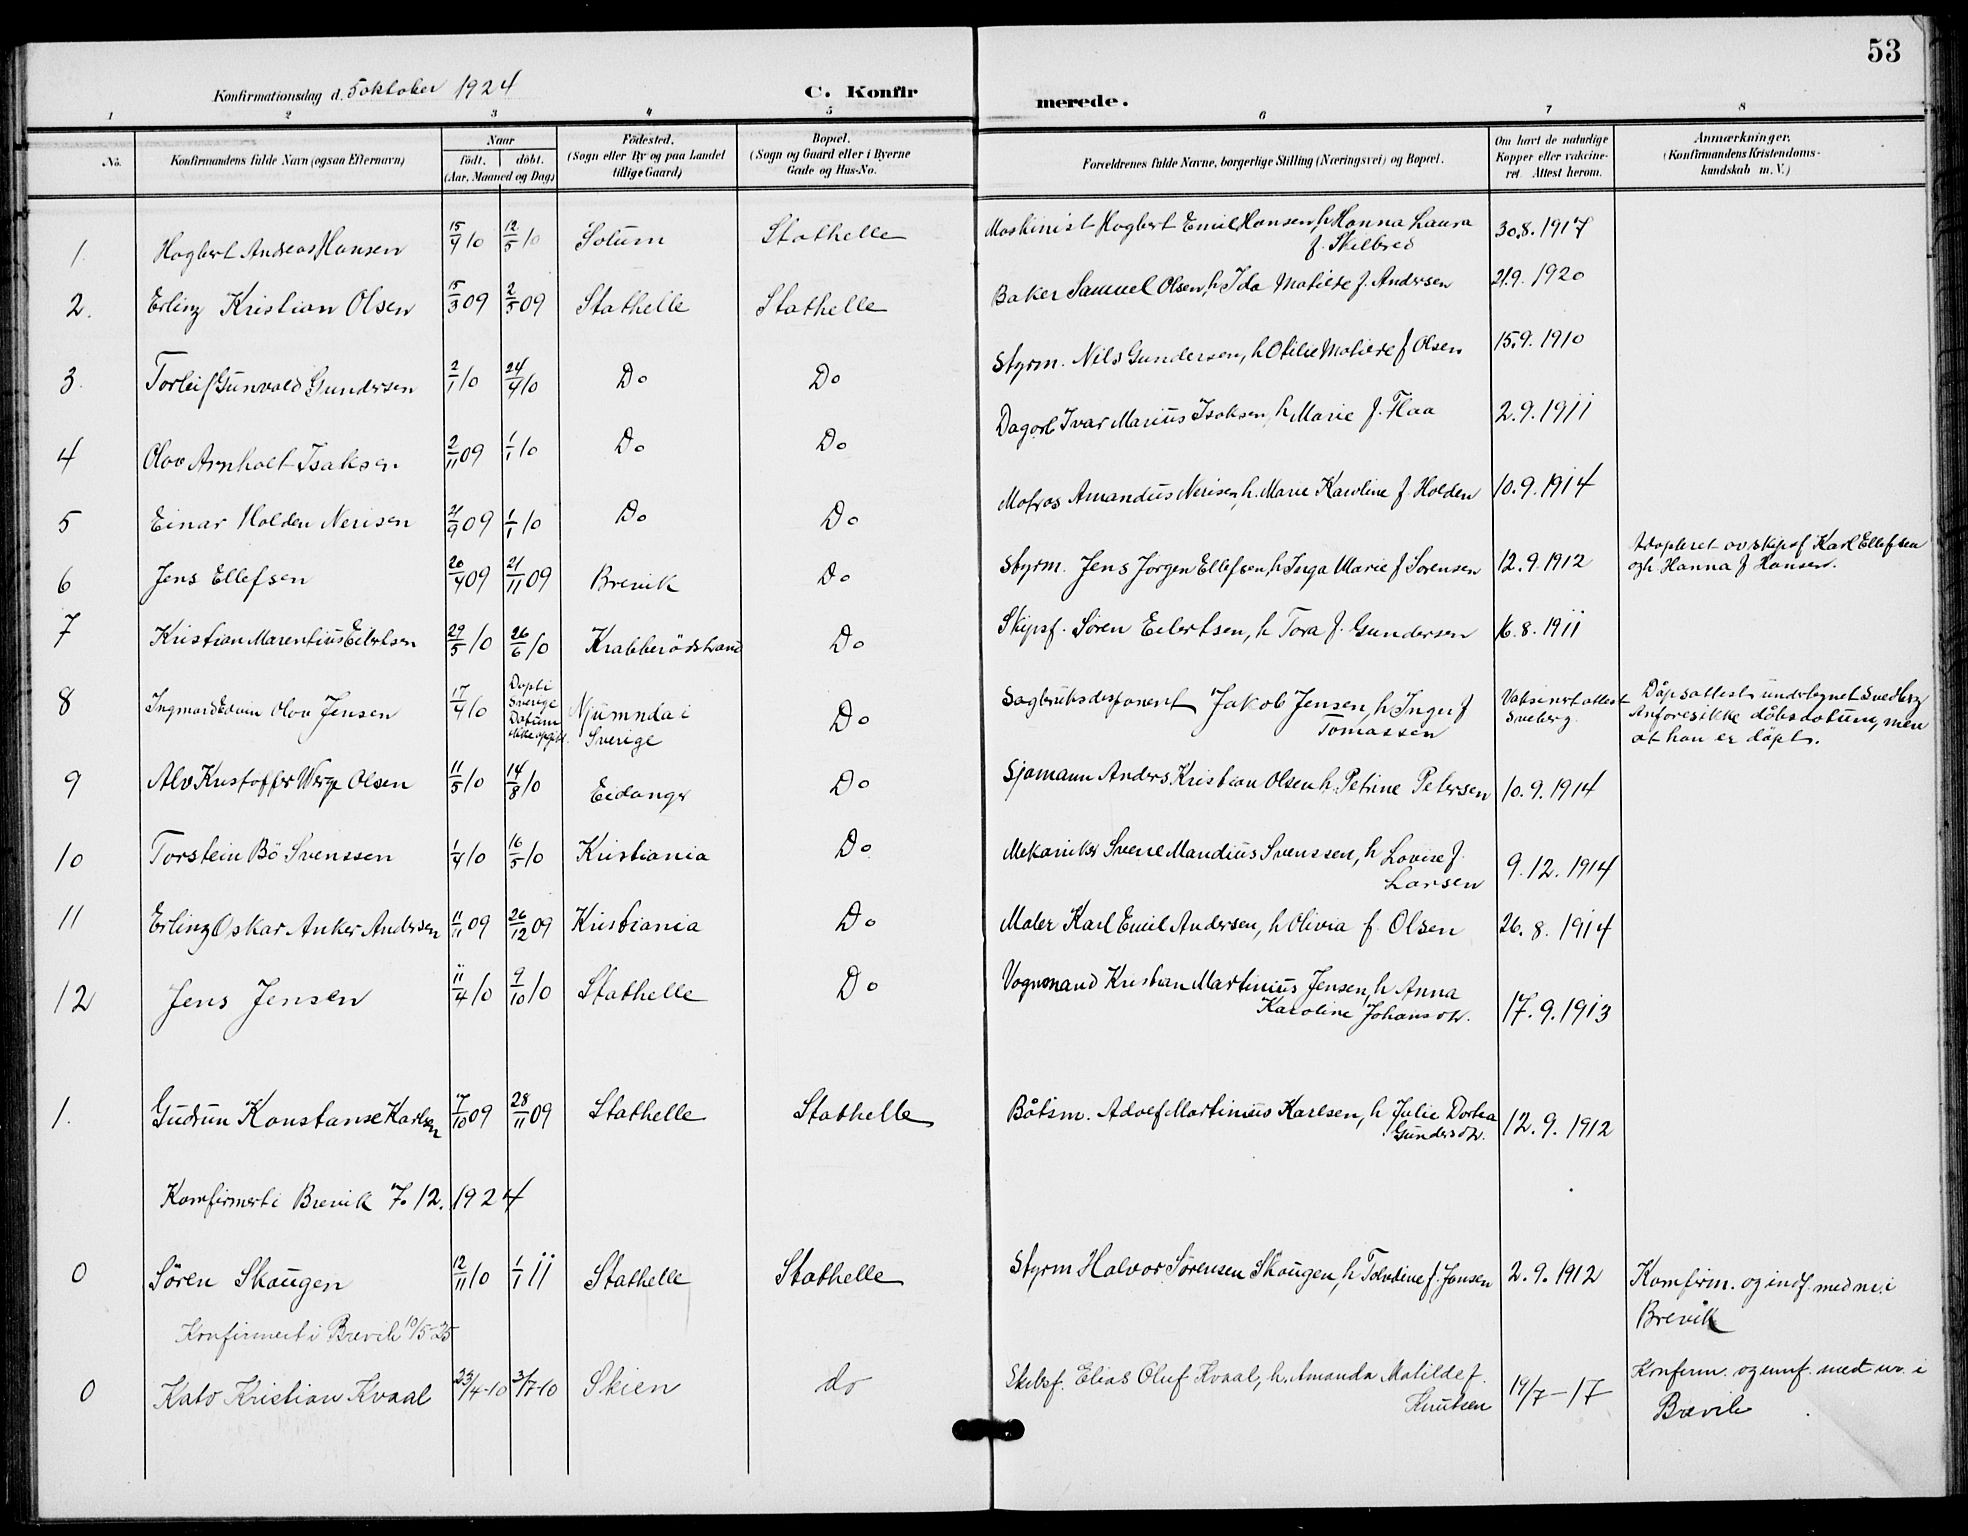 53
Konfirmationsdag d. 5 oktober 1924
C. Konfirmerede.
1 2 3 4 5 6 7 8
No.
Konfirmandens fulde Navn (ogsaa Efternavn)
Naar
födt. döbt.
(Aar, Maaned og Dag)
Födested.
(Sogn eller By og paa Landet
tillige Gaard)
Bopæl.
(Sogn og Gaard eller i Byerne
Gade og Hus-No.
Forældrenes fulde Navne, borgerlige Stilling (Næringsvei) og Bopæl.
Om havt de naturlige
Kopper eller vakcine-
ret. Attest herom.
Anmærkninger.
(Konfirmandens Kristendoms-
kundskab m. V.)
1. Hagbert Andreas Hansen 15/4 10 12/5 10 Solum Stathelle Maskinist Hagbert Emil Hansen, h Hanna Laura 30.8.1917
f. Skilbred
2. Erling Kristian Olsen 15/3 09 2/5 09 Stathelle Stathelle Baker Samuel Olsen, h Ida Matilde f. Andersen 21.9.1920
3. Torleif Gunvald Gundersen 2/1 10 24/4 10 Do Do Styrm. Nils Gundersen, h Otilie Matilde f Olsen 15.9.1910
4 Olav Arnholt Isaksen 2/11 09 1/1 10 Do Do Dagarb Ivar Marius Isaksen, h Marie f. Flaa 2.9.1911
5 Einar Holden Nerisen 21/9 09 1/1 10 Do Do Matros Amandus Nerisen, h. Marie Karoline f. Holden 10.9.1914
6 Jens Ellefsen 20/4 09 21/11 09 Brevik Do Styrm. Jens Jörgen Ellefsen, h Inga Marie f Sorensen 12.9.1912 Adopteret av skipsf Karl Ellefsen
og h Hanna f Hansen.
7 Kristian Marentius Eilertsen 29/5 10 26/6 10 Krabberödstrand Do Skipsf. Sören Eilertsen, h Tora f. Gundersen 16.8.1911
8 Ingmar Edvin Olov Jensen 17/4 10 Döpt i
Sverige
Datum
ikke opgit. Njumnda i
Sverige Do Sagbruksdisponent Jakob Jensen, h Inger f
Tomassen Vaksinertattest
Sneberg. Dåpsattest undertegnet Snedberg
Anfores ikke dåbsdatum, men
at han er döpt.
9 Alv Kristoffer Werge Olsen 11/5 10 14/8 10 Eidanger Do Sjömann Anders Kristian Olsen h. Petrine Petersen 10.9.1914
10 Torstein Bö Svenssen 1/4 10 16/5 10 Kristiania Do Mekaniker Sverre Mandius Svenssen, h Lovise f. 9.12.1914
Larsen
11 Erling Oskar Anker Andersen 11/11 09 26/12 09 Kristiania Do Maler Karl Emil Andersen, h Olivia f. Olsen 26.8.1914
12 Jens Jensen 11/4 10 9/10 10 Stathelle Do Vognmand Kristian Martinius Jensen, h Anna 17.9.1913
Karoline Johansdtr.
1. Gudrun Konstanse Karlsen 7/10 09 28/11 09 Stathelle Stathelle Båtsm. Adolf Martinius Karlsen, h Julie Dortea 12.9.1912
Gundersdtr.
Komfirmert i Brevik 7.12.1924
0 Sören Skaugen 12/11 10 1/1 11 Stathelle Stathelle Styrm Halvor Sörensen Skaugen, h Tolvdine f. Jansen 2.9.1912 Komfirm. og indf. med nr. i
Brevik
Konfirmert i Brevik 10/5-25
0 Kato Kristian Kvaal 23/4-10 3/7-10 Skien do Skibsf. Elias Oluf Kvaal, h. Amanda Matilde f. 14/7-17 Konfirm. og innf. med nr. i
Knutsen Brevik